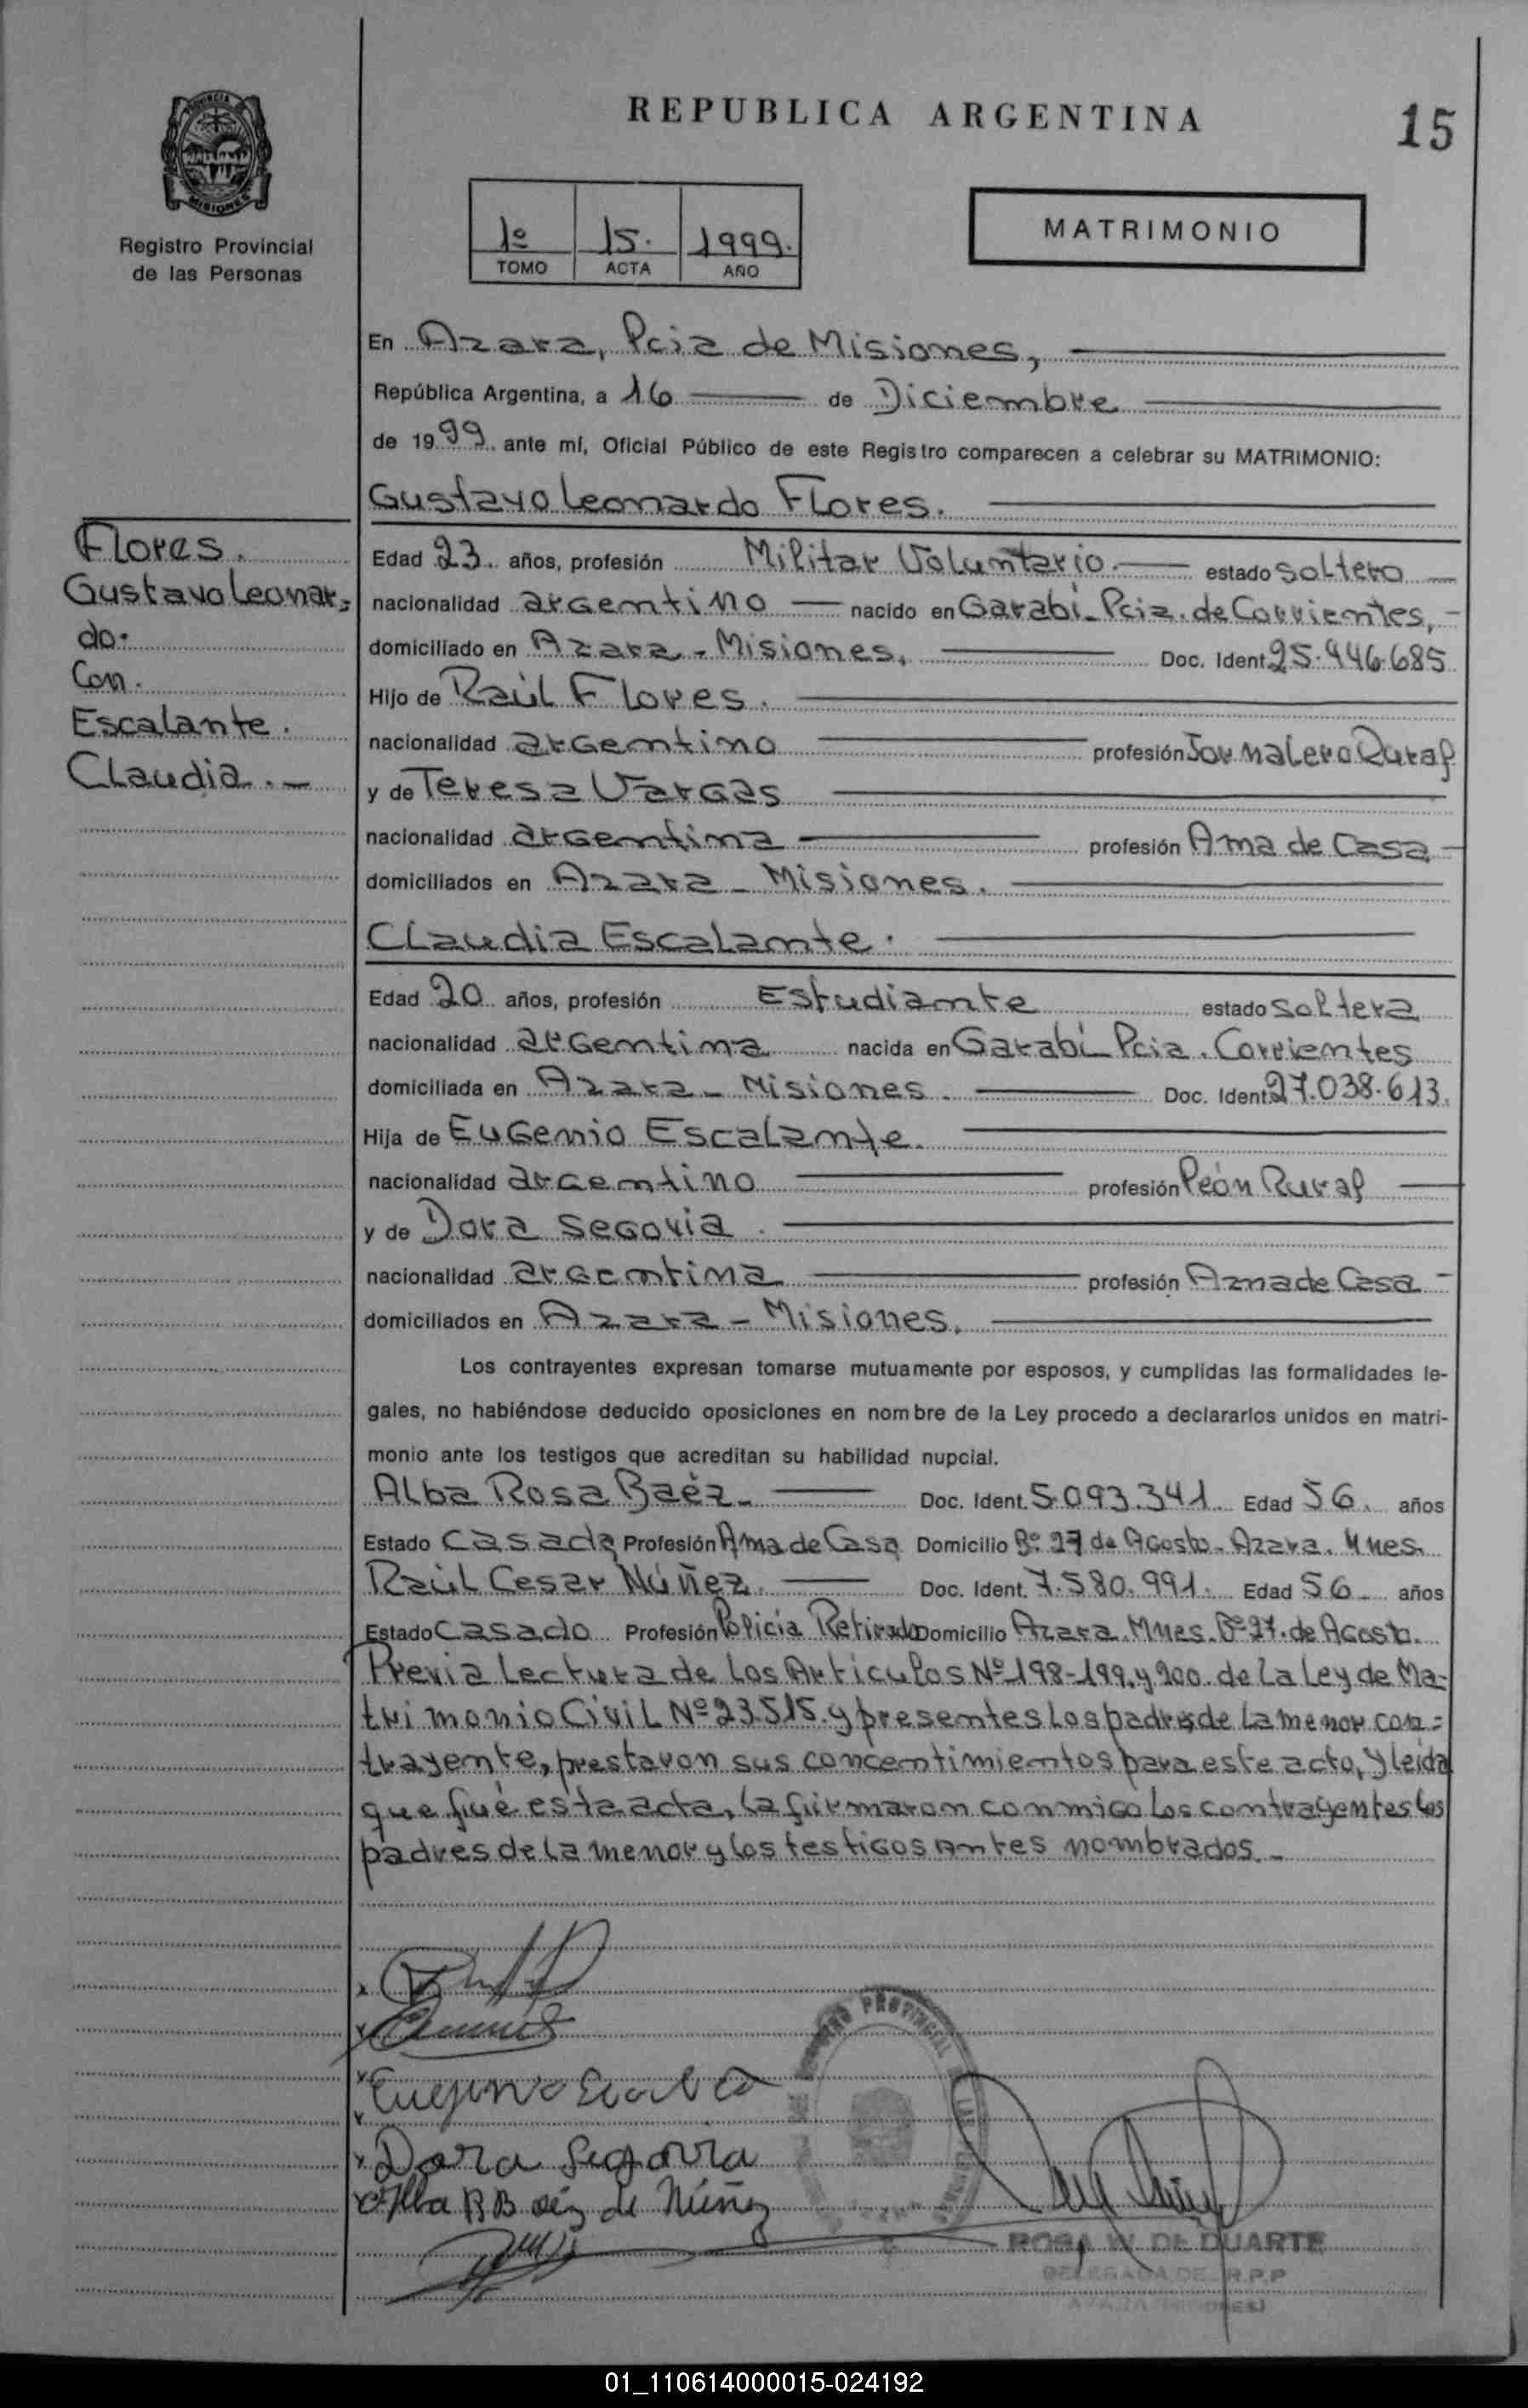 REPUBLICA ARGENTINA
15
PROVINCIA DE
MISIONES
Registro Provincial
de las Personas
1º 15. 1999.
TOMO ACTA AÑO
MATRIMONIO
En Azara, Pcia de Misiones,
República Argentina, a 16 de Diciembre
de 1999 ante mí, Oficial Público de este Registro comparecen a celebrar su MATRIMONIO:
Gustavo Leonardo Flores.
Flores.
Gustavo Leonar=
do.
Con.
Escalante.
Claudia.-
Edad 23. años, profesión Militar Voluntario. estado soltero
nacionalidad argentino nacido en Garabí-Pcia. de Corrientes,
domiciliado en Azara - Misiones. Doc. Ident. 25.946.685
Hijo de Raúl Flores.
nacionalidad argentino profesión Jornalero Rural
y de Teresa Vargas
nacionalidad argentina profesión Ama de Casa
domiciliados en Azara - Misiones.
Claudia Escalante.
Edad 20 años, profesión Estudiante estado soltera
nacionalidad argentina nacida en Garabí Pcia. Corrientes
domiciliada en Azara - Misiones. Doc. Ident. 27.038.613.
Hija de Eugenio Escalante.
nacionalidad argentino profesión Peón Rural
y de Dora Segovia.
nacionalidad argentina profesión Ama de Casa
domiciliados en Azara - Misiones.
Los contrayentes expresan tomarse mutuamente por esposos, y cumplidas las formalidades le-
gales, no habiéndose deducido oposiciones en nombre de la Ley procedo a declararlos unidos en matri-
monio ante los testigos que acreditan su habilidad nupcial.
Alba Rosa Baéz. Doc. Ident. 5.093.341. Edad 56. años
Estado Casada Profesión Ama de Casa Domicilio Bº. 27 de Agosto - Azara. Mnes.
Raúl Cesar Núñez. Doc. Ident. 7.580.991. Edad 56 años
Estado Casado Profesión Policía Retirado Domicilio Azara. Mnes. Bº 27. de Agosto.
Previa Lectura de los Artículos Nº 198-199. y 200. de la Ley de Ma-
trimonio Civil Nº 23.515. y presentes los padres de la menor con=
trayente, prestaron sus concentimientos para este acto, y leída
que fué esta acta, la fuirmaron conmigo los contrayentes los
padres de la menor y los testigos antes nombrados.-
Dora Segovia
Alba R B aéz de Núñez
ROSA W. DE DUARTE
DELEGADA DE R.P.P
01_110614000015-024192